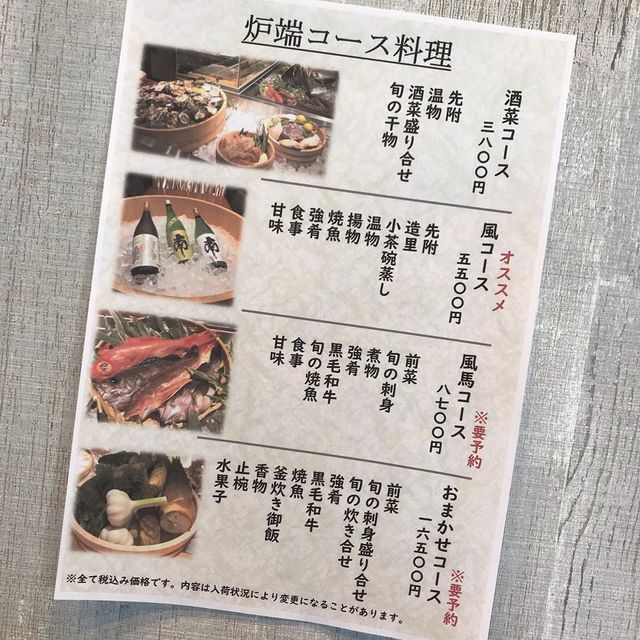 炉端コース料理
酒菜コース
三八〇〇円
先附
温物
酒菜盛り合せ
旬の干物
オススメ
風コース
五五〇〇円
先附
造里
小茶碗蒸し
温物
揚物
焼魚
強肴
食事
甘味
風馬コース
※要予約
八七〇〇円
前菜
旬の刺身
煮物
強肴
黒毛和牛
旬の焼魚
食事
甘味
おまかせコース
※要予約
一六五〇〇円
前菜
旬の刺身盛り合せ
旬の炊き合せ
強肴
黒毛和牛
焼魚
釜炊き御飯
香物
止椀
水果子
※全て税込み価格です。内容は入荷状況により変更になることがあります。